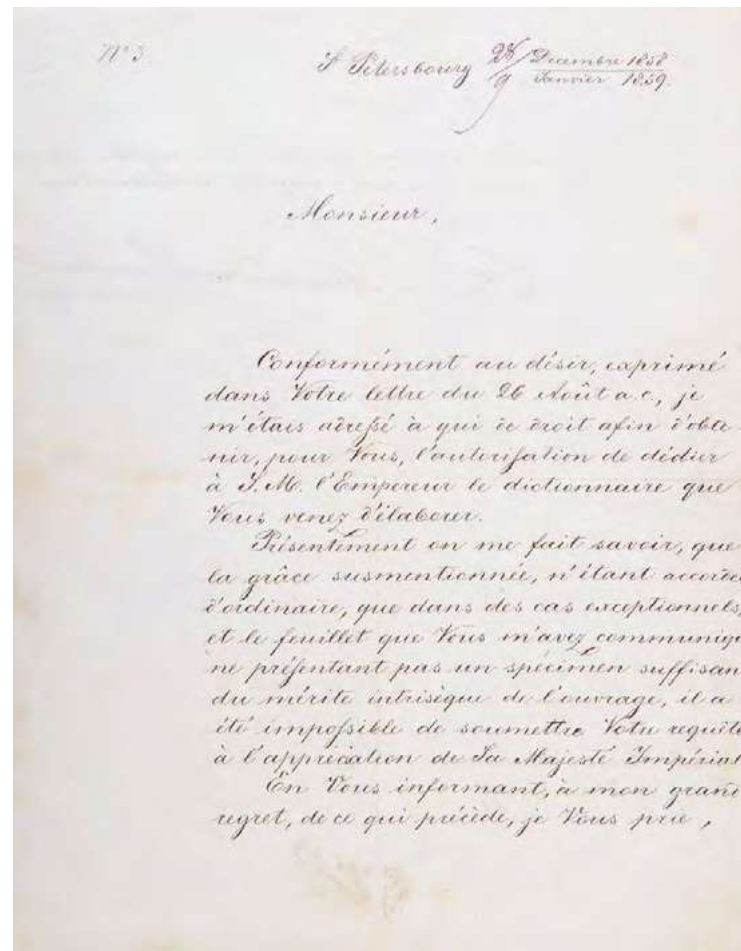 N° 3
St Pétersbourg 28/9 Décembre 1858 / Janvier 1859.
Monsieur,
Conformément au désir, exprimé
dans Votre lettre du 26 Août a.c., je
m'étais adressé à qui de droit afin d'obte-
nir, pour Vous, l'autorisation de dédier
à S.M. l'Empereur le dictionnaire que
Vous venez d'élaborer.
Présentement on me fait savoir, que
la grâce susmentionnée, n'étant accordé
d'ordinaire, que dans des cas exceptionnels,
et le feuillet que Vous m'avez communiqu
ne présentant pas un spécimen suffisan
du mérite intrisèque de l'ouvrage, il a
été impossible de soumettre Votre requête
à l'appréciation de Sa Majesté Impérial
En Vous informant, à mon grand
regret, de ce qui précède, je Vous prie,